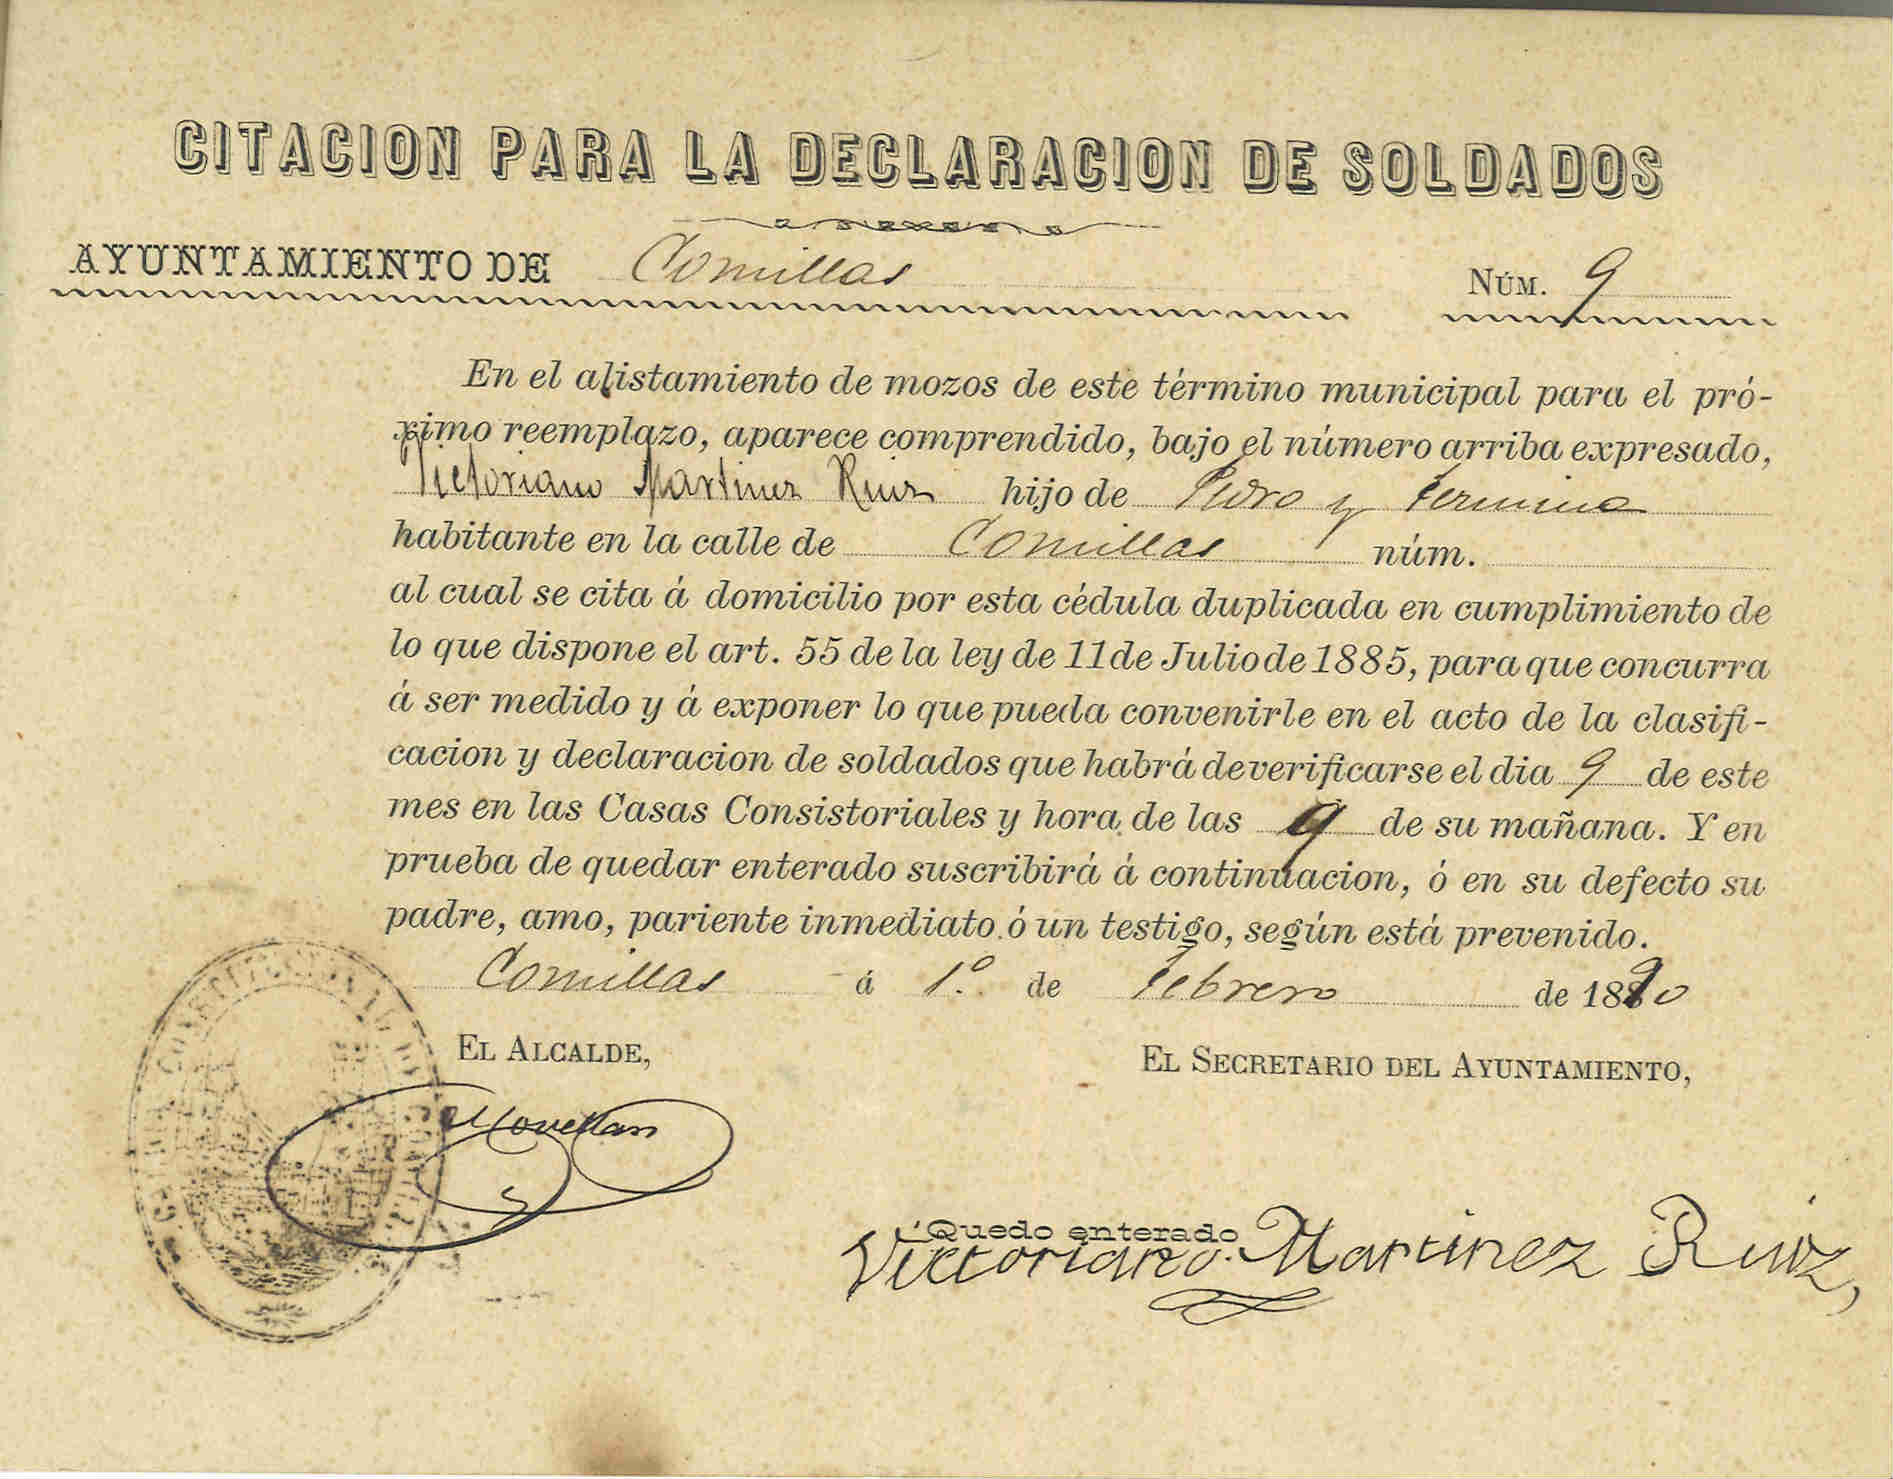 CITACION PARA LA DECLARACION DE SOLDADOS
AYUNTAMIENTO DE Comillas NÚM. 9
En el alistamiento de mozos de este término municipal para el pró-
ximo reemplazo, aparece comprendido, bajo el número arriba expresado,
Victoriano Martinez Ruiz hijo de Pedro y Fermina
habitante en la calle de Comillas núm.
al cual se cita á domicilio por esta cédula duplicada en cumplimiento de
lo que dispone el art. 55 de la ley de 11 de Julio de 1885, para que concurra
á ser medido y á exponer lo que pueda convenirle en el acto de la clasifi-
cacion y declaracion de soldados que habrá de verificarse el dia 9 de este
mes en las Casas Consistoriales y hora de las 9 de su mañana. Y en
prueba de quedar enterado suscribirá á continuacion, ó en su defecto su
padre, amo, pariente inmediato ó un testigo, según está prevenido.
Comillas á 1º. de Febrero de 1890
EL ALCALDE,
EL SECRETARIO DEL AYUNTAMIENTO,
Movellan
Quedo enterado
Victoriano Martinez Ruiz,